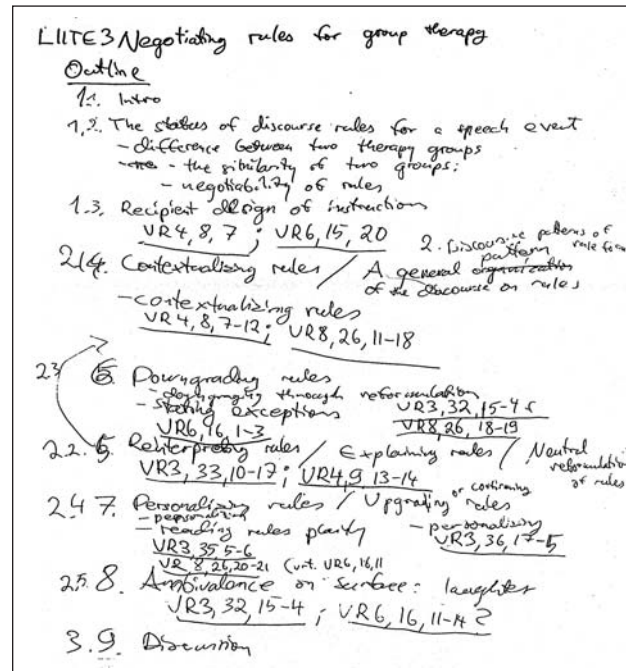 LIITE 3 Negotiating rules for group therapy
Outline
1.1. Intro
1.2. The status of discourse rules for a speech event
- difference between two therapy groups
- the similarity of two groups:
- negotiability of rules
1.3. Recipient design of instructions
VR4, 8, 7 ; VR6, 15, 20
2. Discoursive patterns of
pattern
2.1 4. Contextualizing rules / A general organization
of the discourse on rules
- contextualizing rules
VR4, 8, 7-12 ; VR8, 26, 11-18
2.3 6. Downgrading rules
- downgrading through reformulation
- stating exceptions VR3, 32, 15-4
VR6, 16, 1-3 VR8, 26, 18-19
2.2. 5. Reinterpreting rules / Explaining rules / Neutral
reformulation
of rules
VR3, 33, 10-17 ; VR4, 9, 13-14
2.4 7. Personalizing rules / Upgrading or confirming rules
- personalizing
- reading rules plainly - personalizing
VR3, 35, 5-6 VR3, 36, 17-5
VR 8, 26, 20-21 VR6, 16, 11
2.5. 8. Ambivalence on surface: laughter
VR3, 32, 15-4 ; VR6, 16, 11-14 ?
3. 9. Discussion